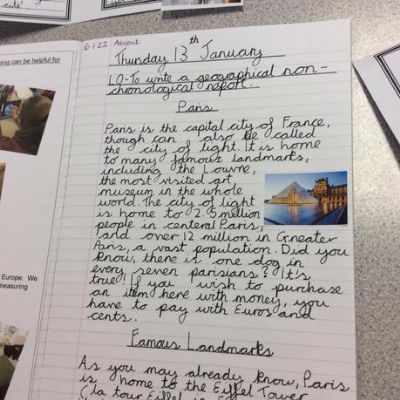 cute'.
6.1.22 Absent
Thursday 13th January
LO-To write a geographical non-
chronological report.
Paris
Paris is the capital city of France,
though can also be called
the city of light. It is home
to many famous landmarks,
including the Louvre,
the most visited art
museum in the whole
world. The city of light
is home to 2.5 million
people in centeral Paris,
and over 12 million in Greater
Paris, a vast population. Did you
know, there is one dog in
every seven parisians? It's
true! If you wish to purchase
an item here with money, you
have to pay with Euros and
cents.
Famous Landmarks
As you may already know, Paris
is home to the Eiffel Tower
(la tour Eiffel
ing can be helpful for
Europe. We
measuring